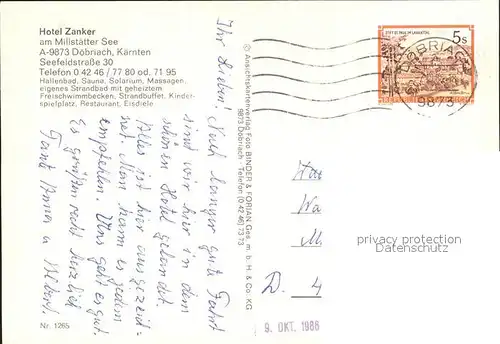 Hotel Zanker
am Millstätter See
A-9873 Döbriach, Kärnten
Seefeldstraße 30
Telefon 0 42 46 / 77 80 od. 71 95
Hallenbad, Sauna, Solarium, Massagen,
eigenes Strandbad mit geheiztem
Freischwimmbecken, Strandbuffet, Kinder-
spielplatz, Restaurant, Eisdiele
Ihr Lieben!
Nach langer guter Fahrt
sind wir hier in dem
schönen Hotel gelandet.
Alles ist hier ausgezeich-
net. Man kann es jedem
empfehlen. Uns geht es gut.
Es grüßen recht herzlich
Tante Anna u.
Nr. 1265
© Ansichtskartenverlag Foto BINDER & FORIAN Ges. m. b. H. & Co. KG
9873 Döbriach - Telefon (0 42 46) 73 73
5s
DÖBRIACH
9873
Wa
M
D. 4
privacy protection
watermark
9. OKT. 1986